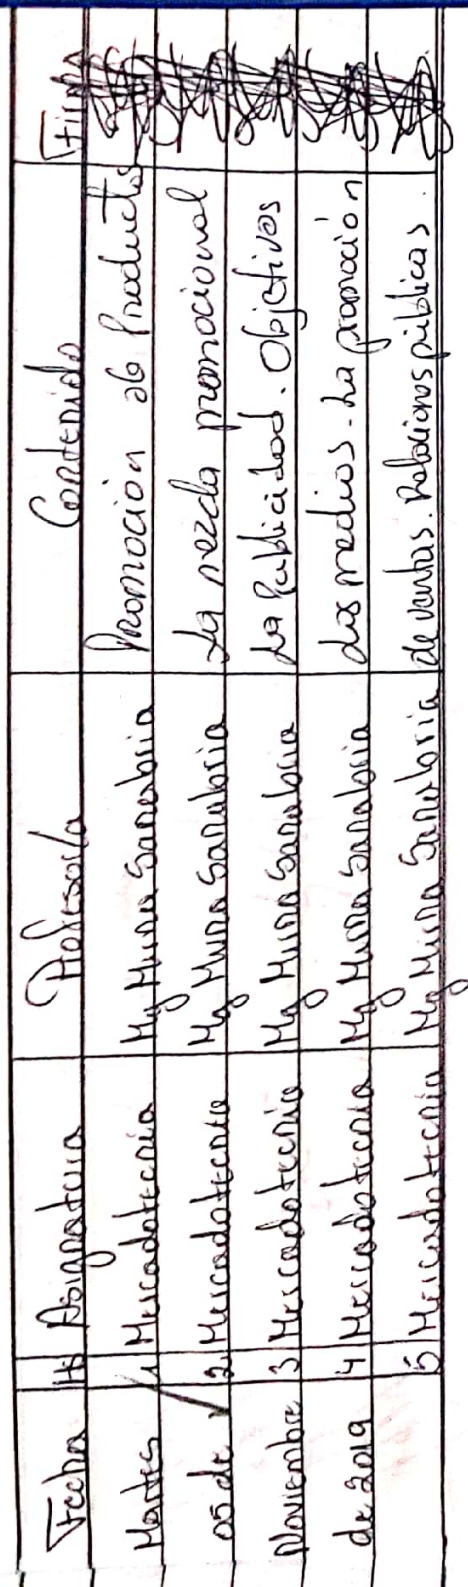 Fecha Hs Asignatura Profesor/a Contenido Firma
Martes 1 Mercadotecnia Mg Mirna Sanabria Promoción de Productos
05 de 2 Mercadotecnia Mg Mirna Sanabria La mezcla promocional
Noviembre 3 Mercadotecnia Mg Mirna Sanabria La Publicidad. Objetivos
de 2019 4 Mercadotecnia Mg Mirna Sanabria Los medios. La promoción
5 Mercadotecnia Mg Mirna Sanabria de ventas. Relaciones públicas.